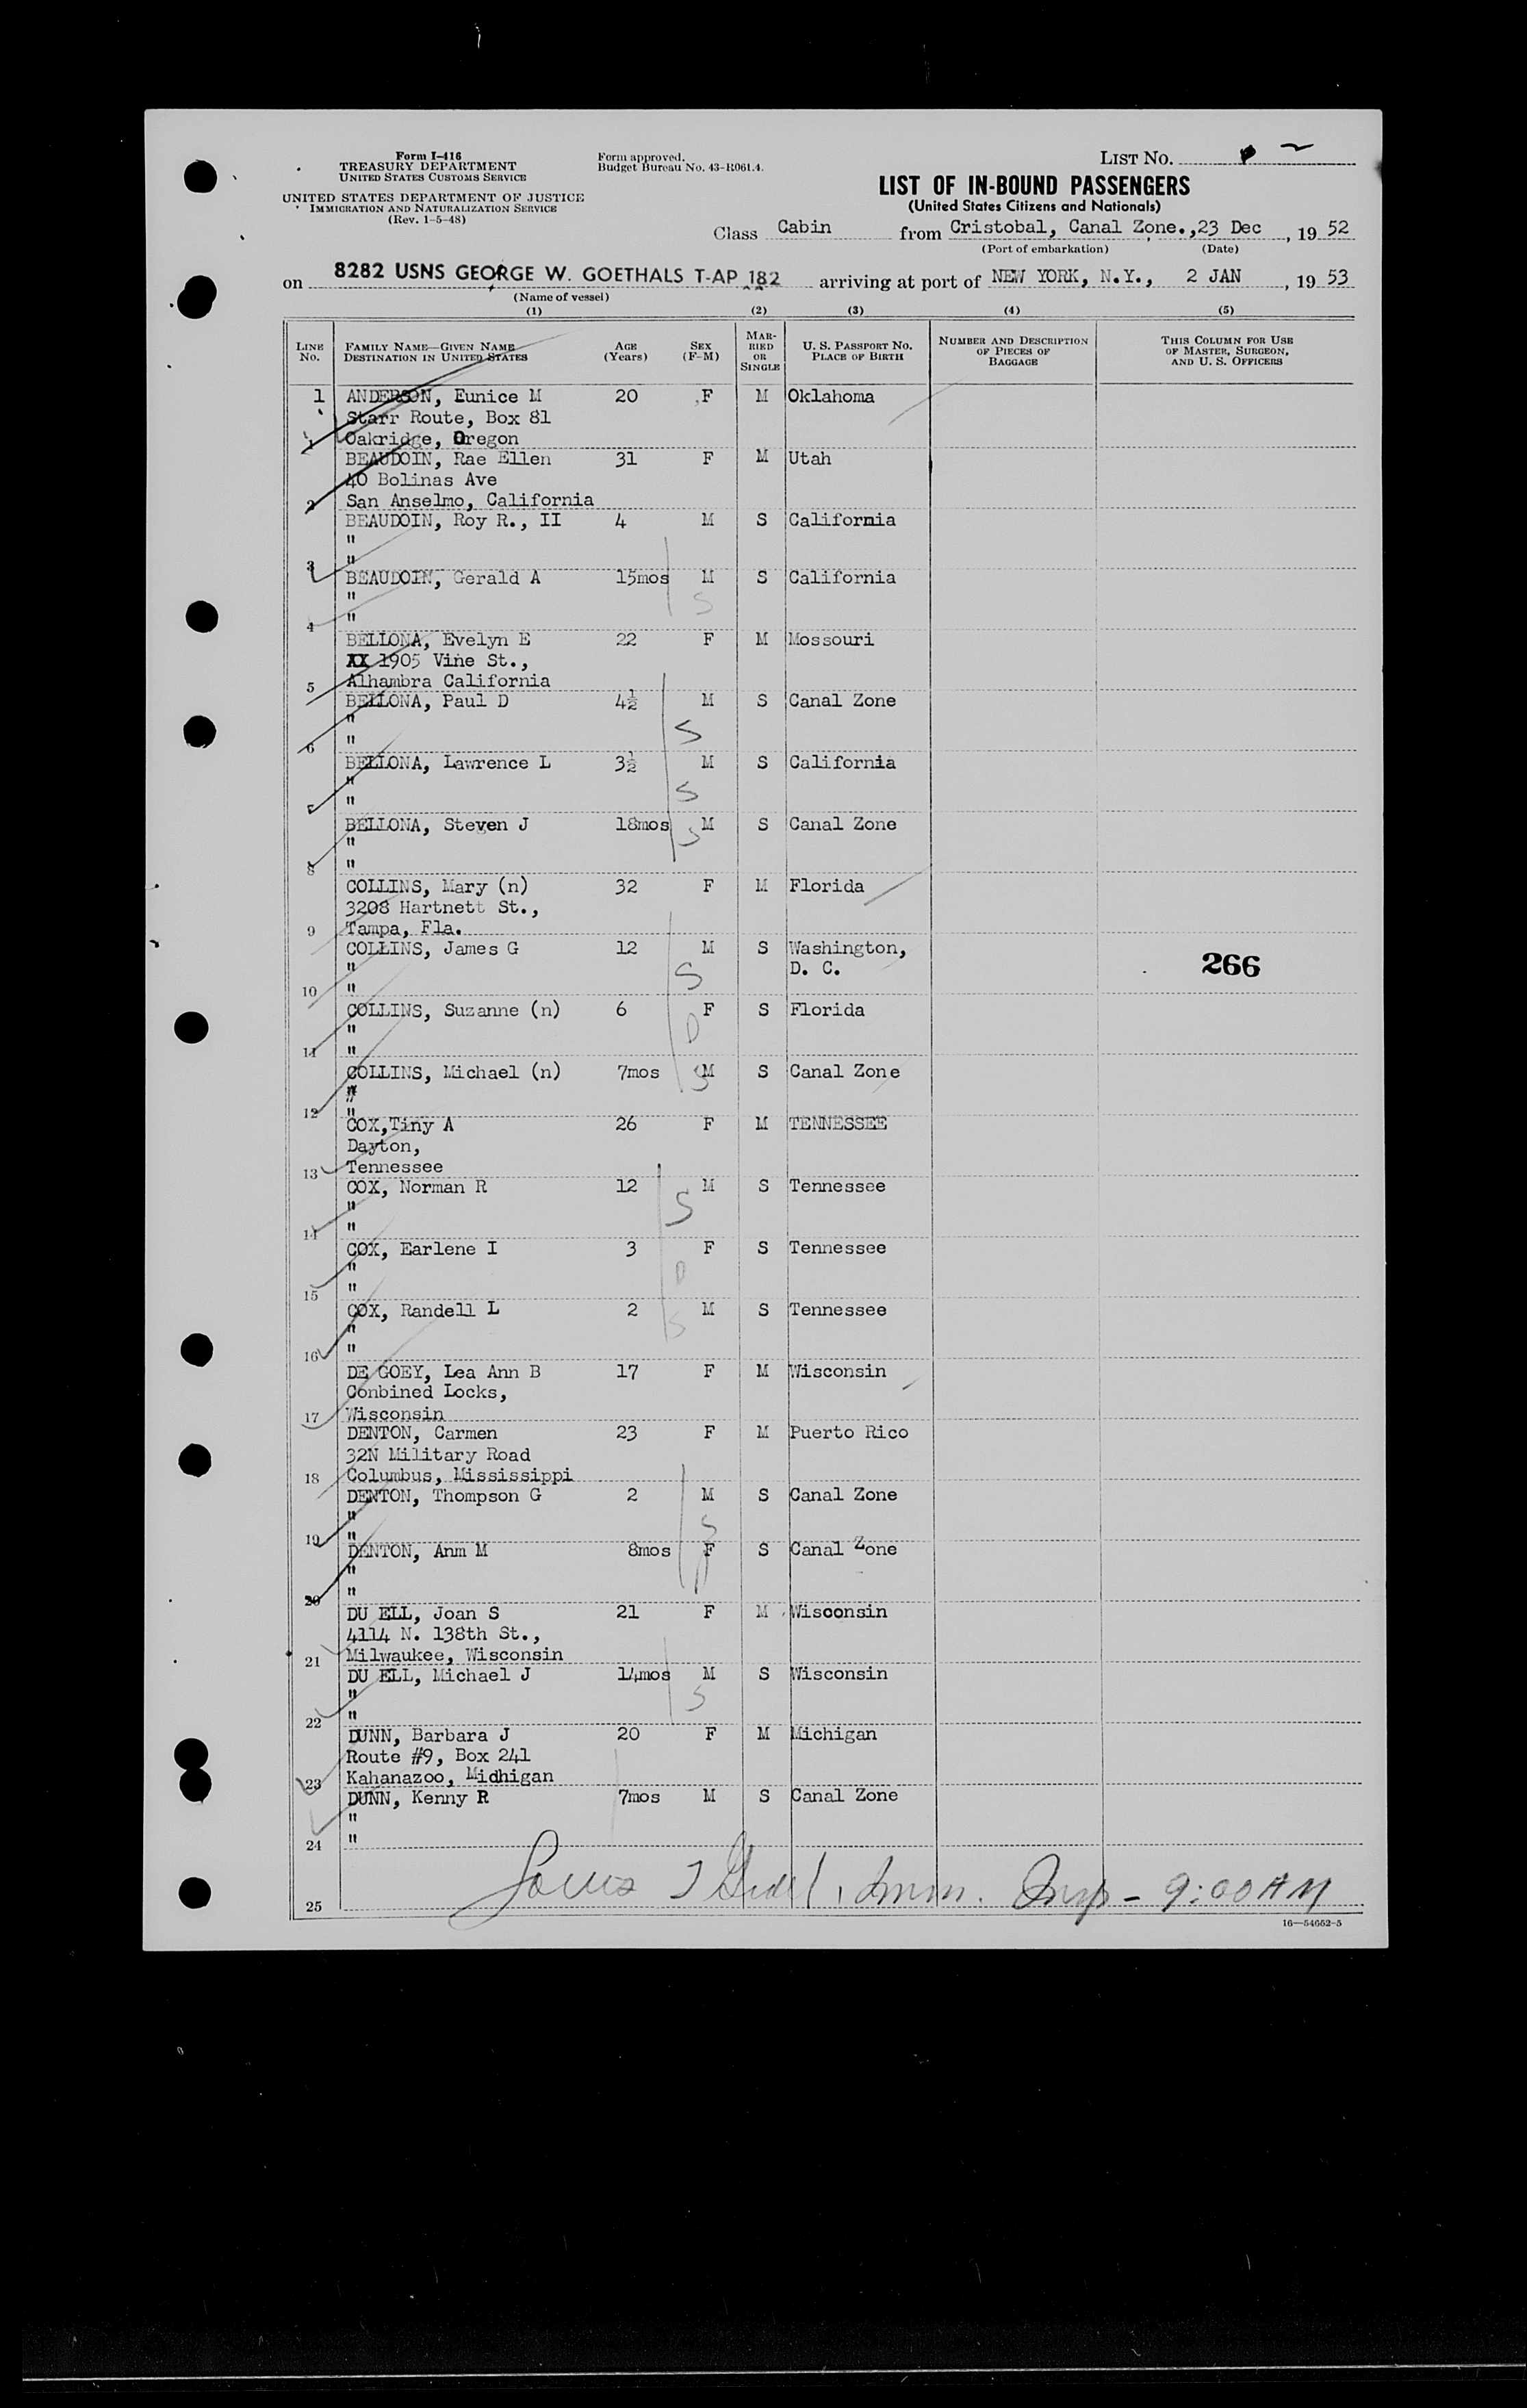 Form I-416
TREASURY DEPARTMENT
UNITED STATES CUSTOMS SERVICE
UNITED STATES DEPARTMENT OF JUSTICE
IMMIGRATION AND NATURALIZATION SERVICE
(Rev. 1-5-48)
Form approved.
Budget Bureau No. 43-R061.4.
LIST No. 2
LIST OF IN-BOUND PASSENGERS
(United States Citizens and Nationals)
Class Cabin from Cristobal, Canal Zone.,23 Dec , 19 52
(Port of embarkation) (Date)
on 8282 USNS GEORGE W. GOETHALS T-AP 182 arriving at port of NEW YORK, N.Y., 2 JAN , 19 53
(Name of vessel)
(1) (2) (3) (4) (5)
LINE No. FAMILY NAME—GIVEN NAME DESTINATION IN UNITED STATES AGE (Years) SEX (F-M) MARRIED OR SINGLE U. S. PASSPORT NO. PLACE OF BIRTH NUMBER AND DESCRIPTION OF PIECES OF BAGGAGE THIS COLUMN FOR USE OF MASTER, SURGEON, AND U. S. OFFICERS
1 ANDERSON, Eunice M 20 F M Oklahoma
Starr Route, Box 81
1 Oakridge, Oregon
BEAUDOIN, Rae Ellen 31 F M Utah
40 Bolinas Ave
2 San Anselmo, California
BEAUDOIN, Roy R., II 4 M S California
"
3 "
BEAUDOIN, Gerald A 15mos M S California
" S
4 "
BELLONA, Evelyn E 22 F M Mossouri
XX 1905 Vine St.,
5 Alhambra California
BELLONA, Paul D 4½ M S Canal Zone
" S
6 "
BELLONA, Lawrence L 3½ M S California
" S
7 "
BELLONA, Steven J 18mos M S Canal Zone
" S
8 "
COLLINS, Mary (n) 32 F M Florida
3208 Hartnett St.,
9 Tampa, Fla.
COLLINS, James G 12 M S Washington,
" S D. C. 266
10 "
COLLINS, Suzanne (n) 6 F S Florida
" D
11 "
COLLINS, Michael (n) 7mos M S Canal Zone
" S
12 "
COX,Tiny A 26 F M TENNESSEE
Dayton,
13 Tennessee
COX, Norman R 12 M S Tennessee
" S
14 "
COX, Earlene I 3 F S Tennessee
" D
15 "
COX, Randell L 2 M S Tennessee
" S
16 "
DE GOEY, Lea Ann B 17 F M Wisconsin
Conbined Locks,
17 Wisconsin
DENTON, Carmen 23 F M Puerto Rico
32N Military Road
18 Columbus, Mississippi
DENTON, Thompson G 2 M S Canal Zone
" S
19 "
DENTON, Anm M 8mos F S Canal Zone
" D
20 "
DU ELL, Joan S 21 F M Wisconsin
4114 N. 138th St.,
21 Milwaukee, Wisconsin
DU ELL, Michael J 14mos M S Wisconsin
" S
22 "
DUNN, Barbara J 20 F M Michigan
Route #9, Box 241
23 Kahanazoo, Midhigan
DUNN, Kenny R 7mos M S Canal Zone
"
24 "
25 Imm. Insp - 9:00 AM
16—54652-5